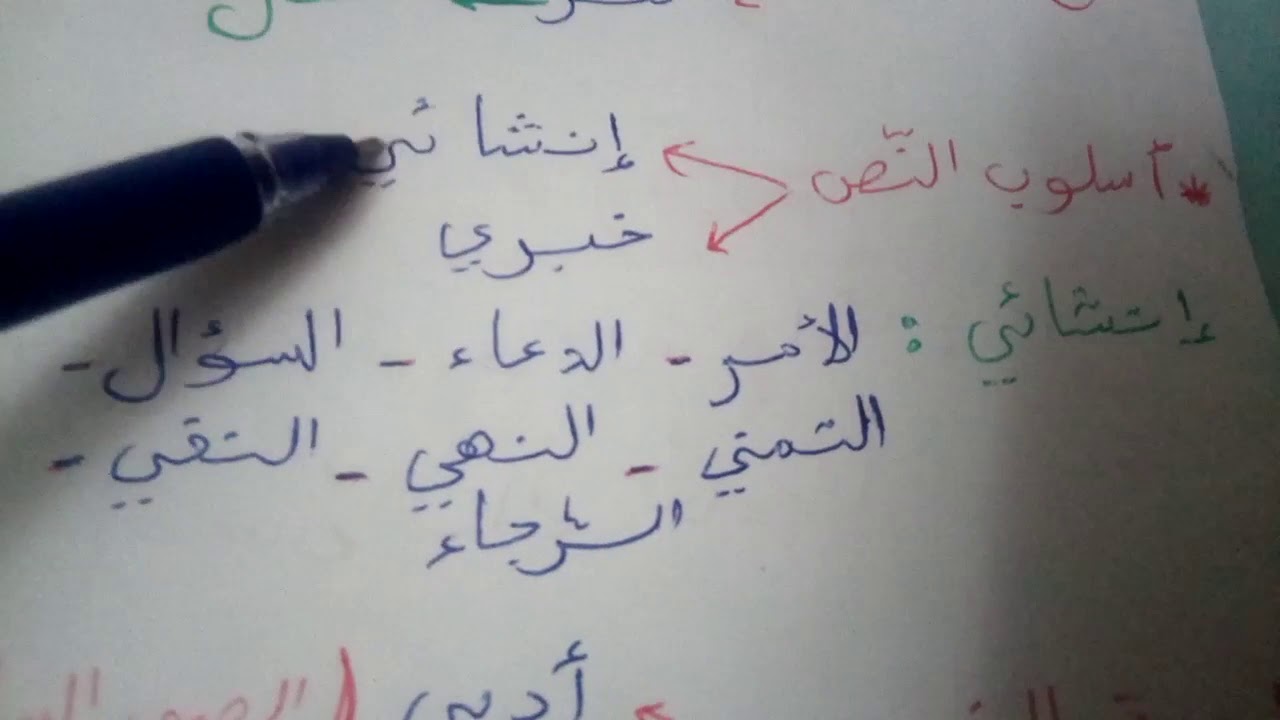 * أسلوب النّص إنشائي
خبري
إنشائي : الأمر - الدعاء - السؤال -
التمني - النهي - النفي -
الرّجاء
أدبي